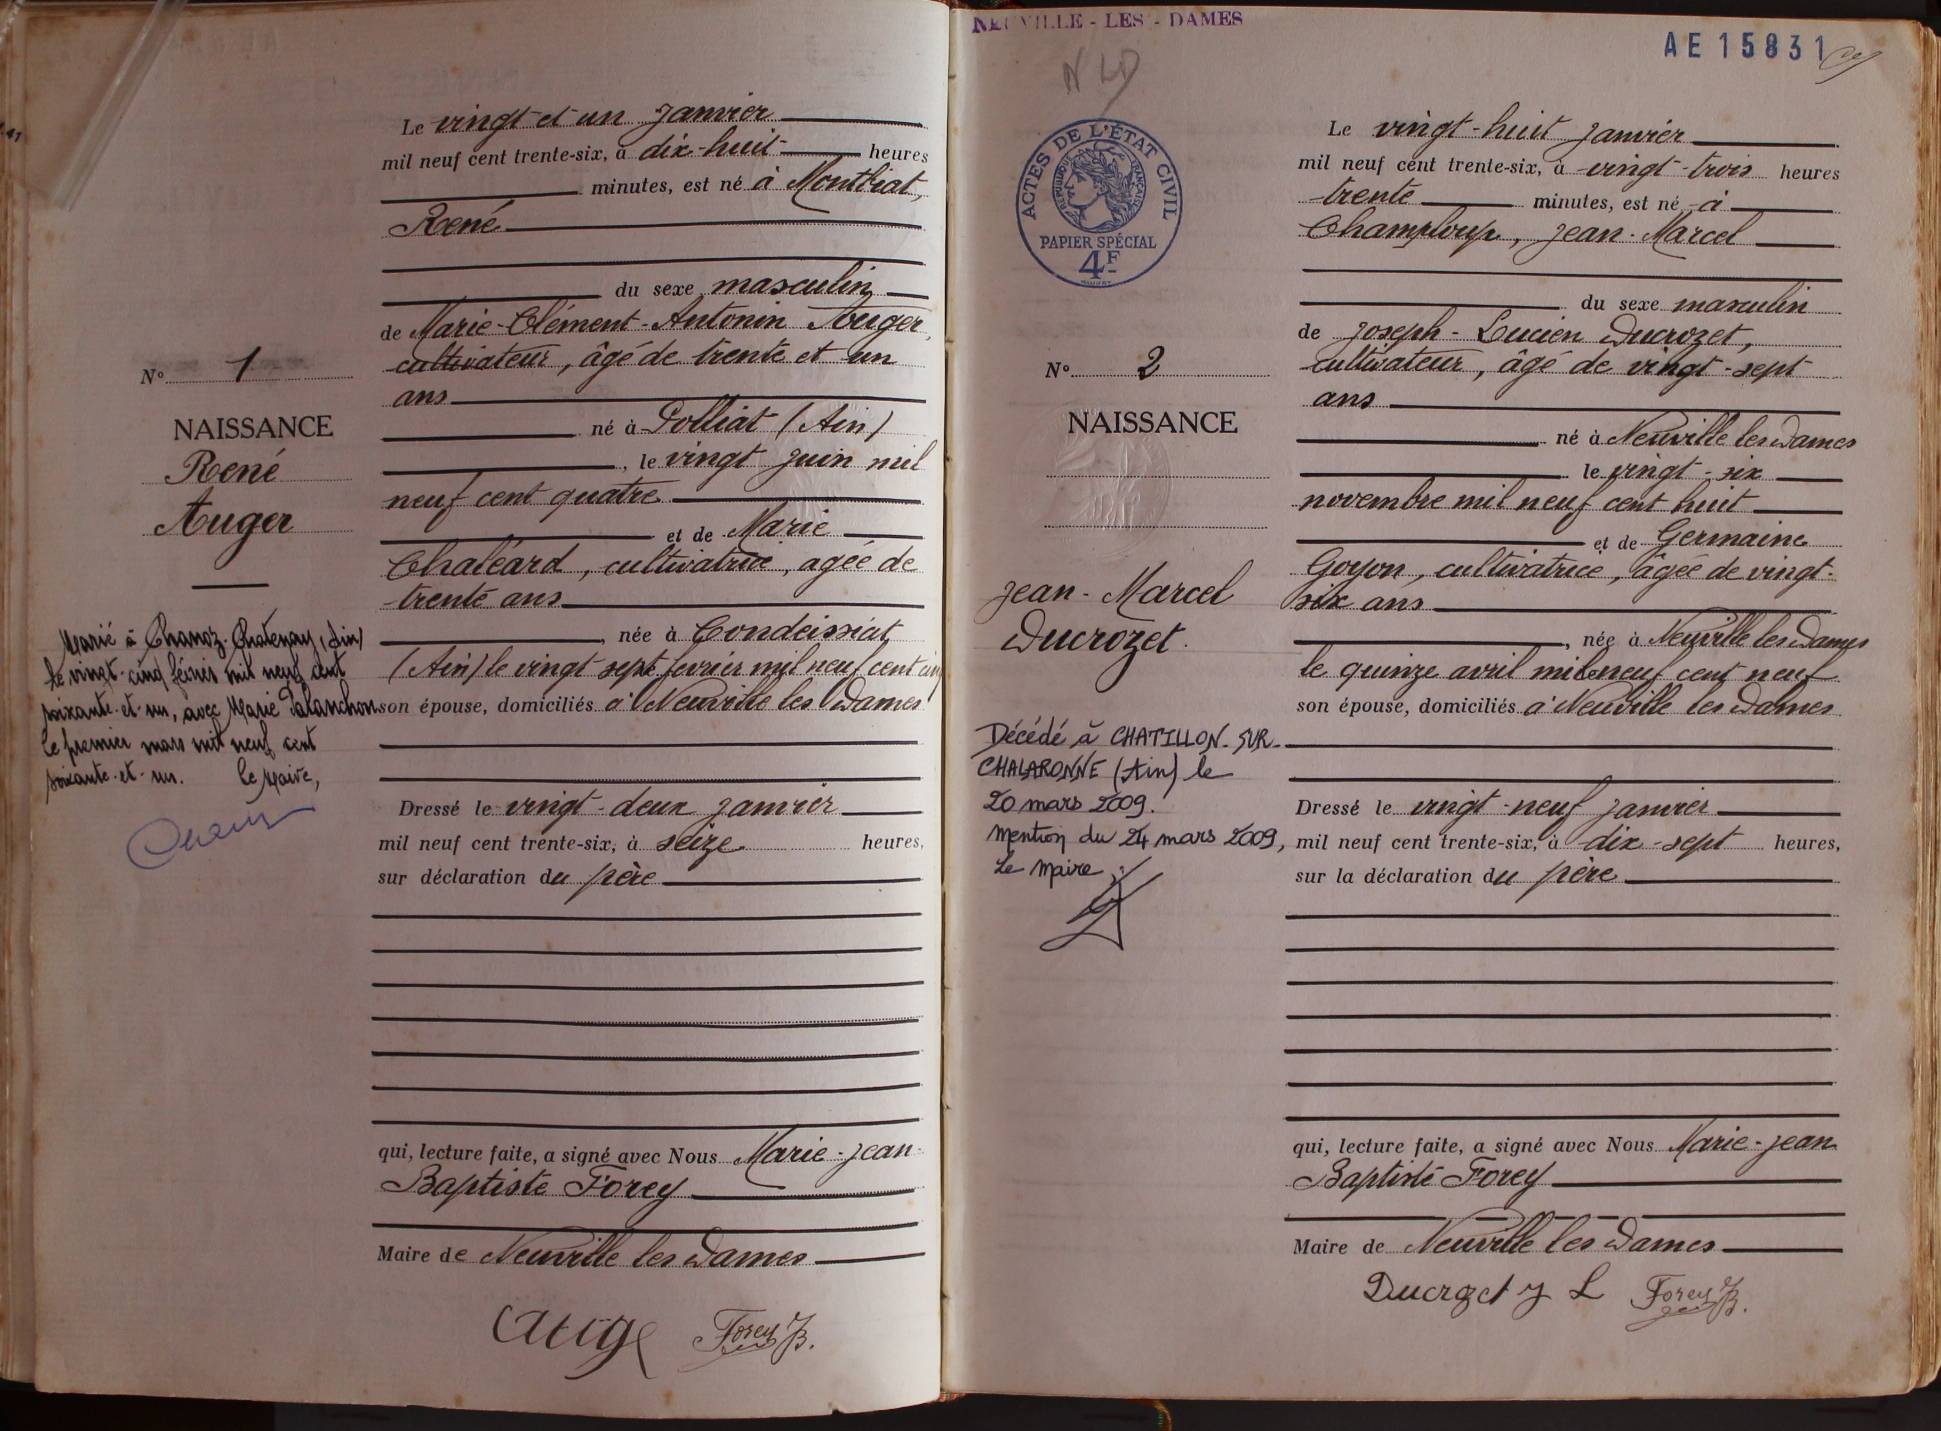 Le vingt et un janvier
mil neuf cent trente-six, à dix-huit heures
minutes, est né à Montbiat,
René
du sexe masculin
de Marie-Clément-Antonin Auger,
cultivateur, âgé de trente et un
ans
né à Polliat (Ain)
, le vingt juin mil
neuf cent quatre
et de Marie
Chaléard, cultivatrice, agée de
trente ans
née à Condeissiat
(Ain) le vingt sept fevrier mil neuf cent cinq
son épouse, domiciliés à Neuville les Dames
Dressé le vingt-deux janvier
mil neuf cent trente-six, à seize heures,
sur déclaration du père
qui, lecture faite, a signé avec Nous Marie-Jean-
Baptiste Forey
Maire de Neuville les Dames
Auger Forey JB.
N° 1
NAISSANCE
René
Auger
Marié à Chanoz-Chatenay (Ain)
le vingt-cinq février mil neuf cent
soixante-et-un, avec Marie Palanchon
le premier mars mil neuf cent
soixante-et-un. Le Maire,
NEUVILLE-LES-DAMES
NLD
AE 15831
ACTES DE L'ÉTAT CIVIL
RÉPUBLIQUE FRANÇAISE
PAPIER SPÉCIAL
4F
N° 2
NAISSANCE
Jean-Marcel
Ducrozet.
Décédé à CHATILLON-SUR-
CHALARONNE (Ain) le
20 mars 2009.
Mention du 24 mars 2009,
Le Maire,
Le vingt-huit janvier
mil neuf cent trente-six, à vingt-trois heures
trente minutes, est né à
Champloup, Jean-Marcel
du sexe masculin
de Joseph-Lucien Ducrozet,
cultivateur, âgé de vingt-sept
ans
né à Neuville les Dames
le vingt-six
novembre mil neuf cent huit
et de Germaine
Goyon, cultivatrice, âgée de vingt-
six ans
, née à Neuville les Dames
le quinze avril mil neuf cent neuf
son épouse, domiciliés à Neuville les Dames
Dressé le vingt-neuf janvier
mil neuf cent trente-six, à dix-sept heures,
sur la déclaration du père
qui, lecture faite, a signé avec Nous Marie-Jean
Baptiste Forey
Maire de Neuville les Dames
Ducrozet J L Forey JB.